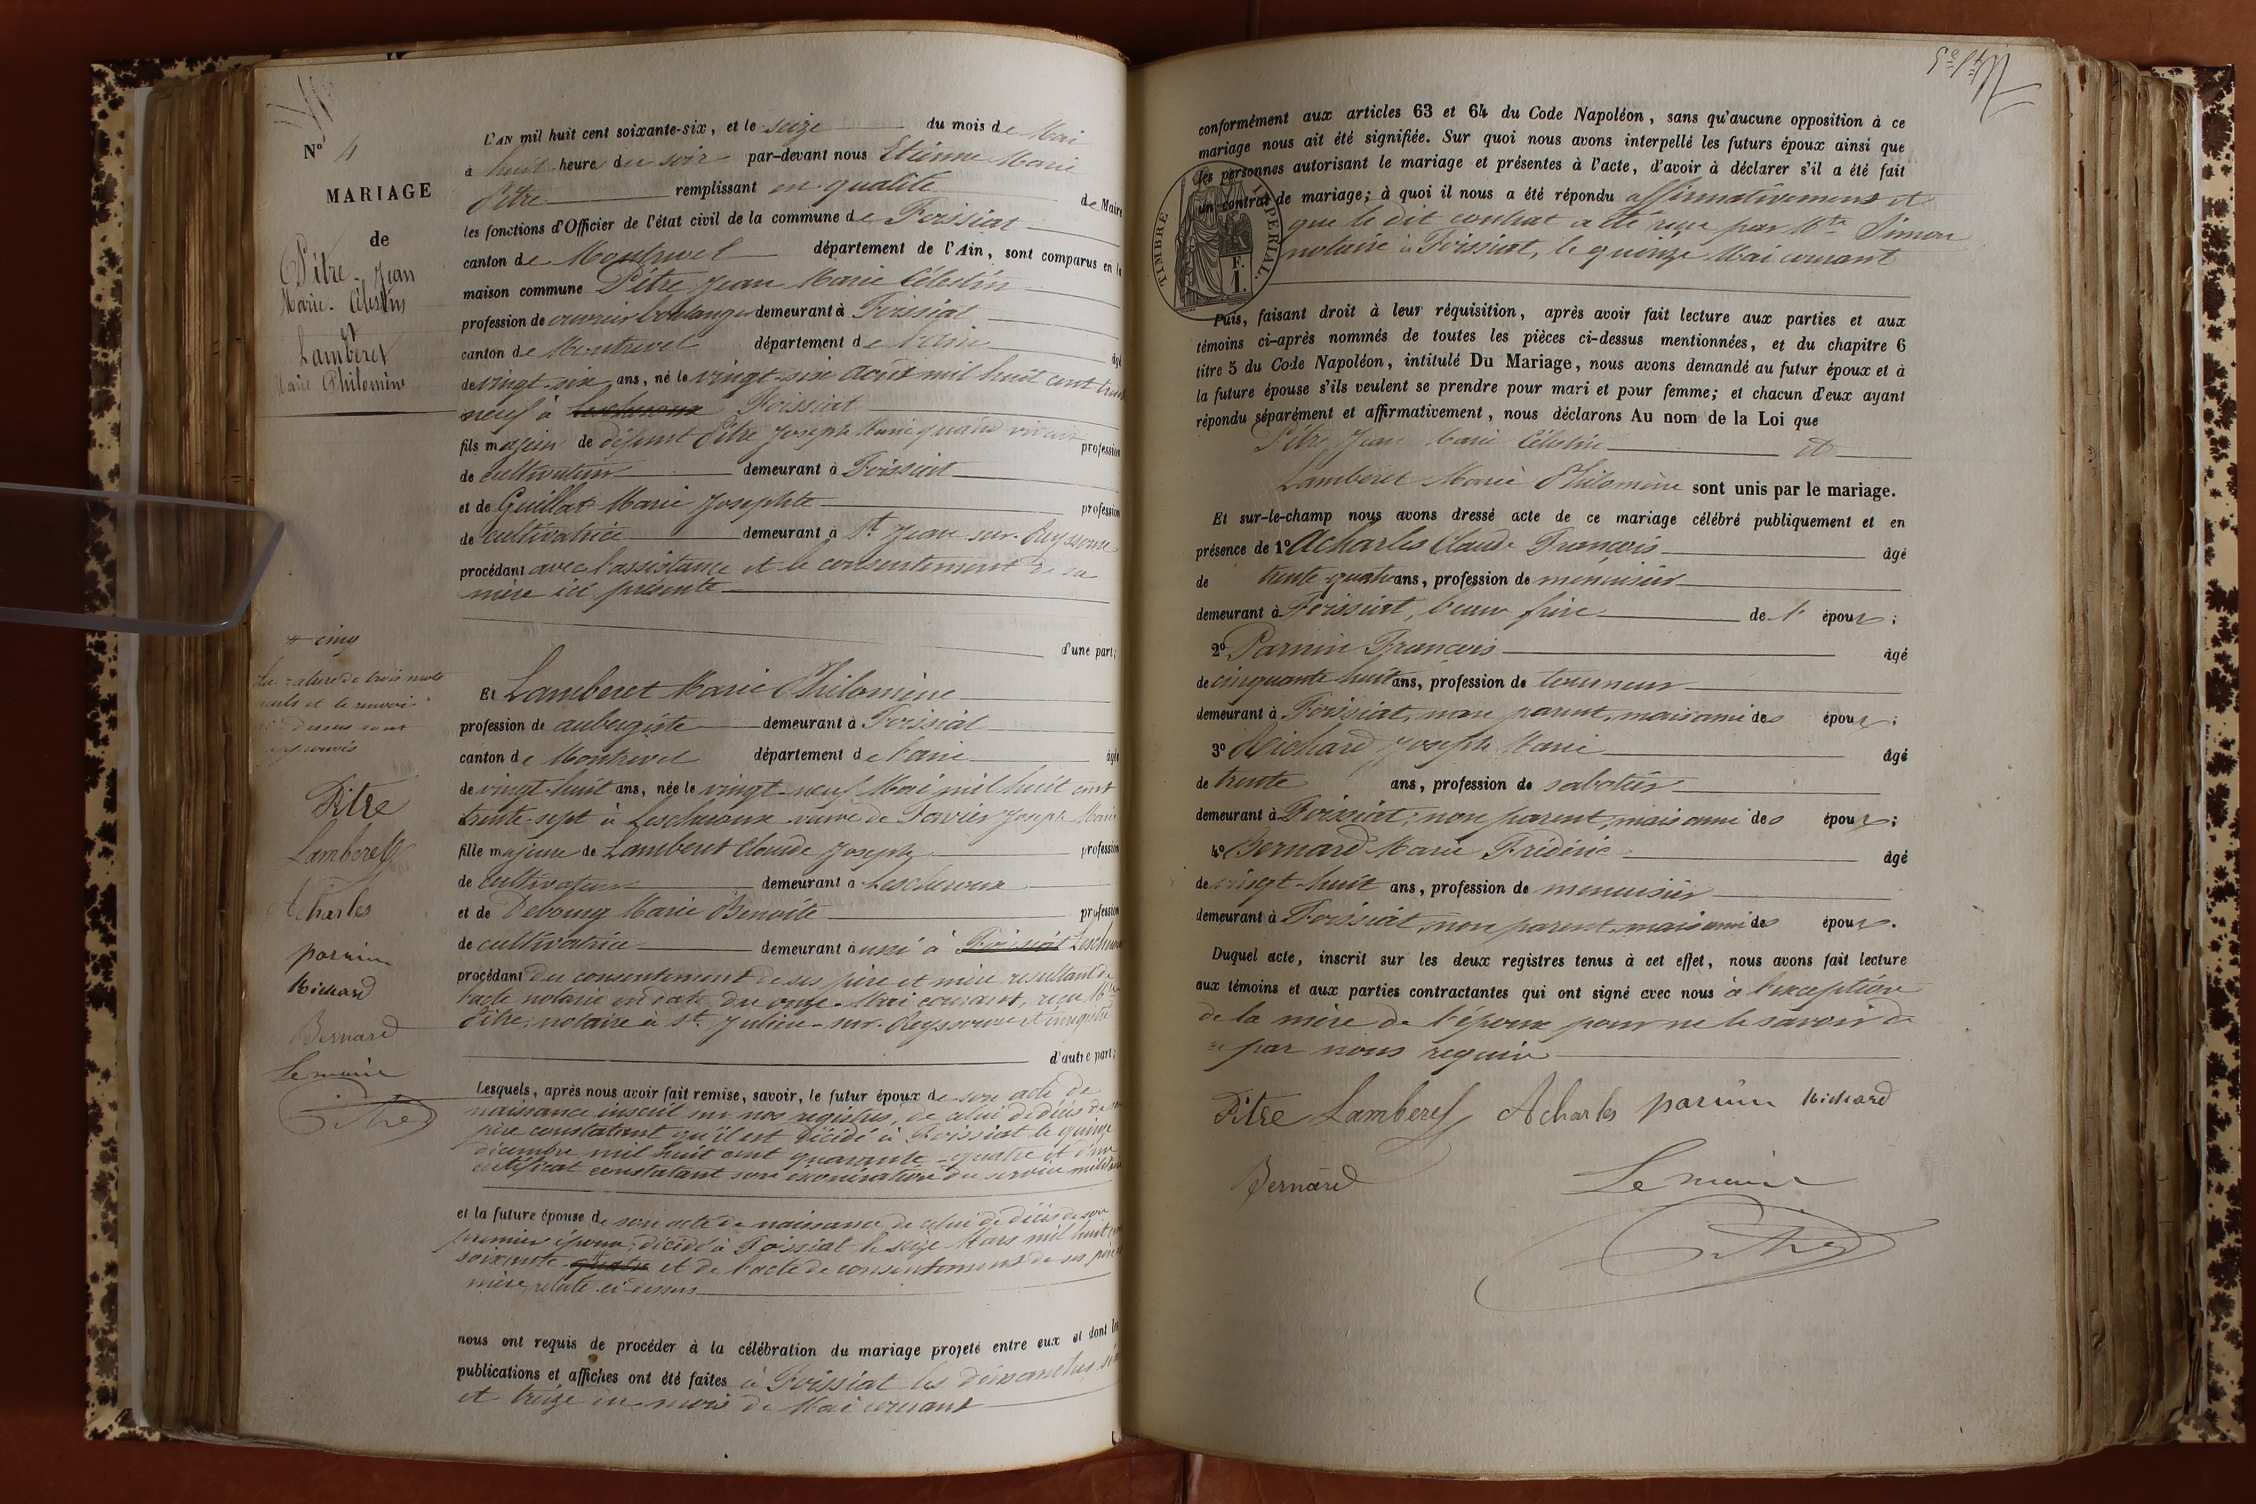 N° 4
MARIAGE
de
Pitre Jean
Marie Célestin
et
Lamberet
Marie Philomine
L'AN mil huit cent soixante-six, et le seize du mois de Mai
à huit heures du soir par-devant nous Etienne Marie
Pitre remplissant en qualité de Maire
les fonctions d'Officier de l'état civil de la commune de Foissiat
canton de Montrevel département de l'Ain, sont comparus en la
maison commune Pitre Jean Marie Célestin
profession de ouvrier boulanger demeurant à Foissiat
canton de Montrevel département de l'ain âgé
de vingt-six ans, né le vingt-six Août mil huit cent trente
neuf à Lescheroux Foissiat
fils majeur de défunt Pitre Joseph Marie quand vivait profession
de cultivateur demeurant à Foissiat
et de Guillat Marie Josephte profession
de cultivatrice demeurant à St Jean-sur-Reyssouze
procédant avec l'assistance et le consentement de sa
mère ici présente
d'une part;
Et Lamberet Marie Philomine
profession de aubergiste demeurant à Foissiat
canton de Montrevel département de l'ain âgée
de vingt-huit ans, née le vingt-neuf Mai mil huit cent
trente-sept à Lescheroux veuve de Favier Joseph Marie
fille majeure de Lamberet Claude Joseph profession
de cultivateur demeurant à Lescheroux
et de Debourg Marie Benoîte profession
de cultivatrice demeurant aussi à Foissiat Lescheroux
procédant du consentement de ses père et mère resultant de
l'acte notarié en date du onze Mai courant, reçu Mtre
Pitre, notaire à St Julien-sur-Reyssouze et enregistré
d'autre part;
Lesquels, après nous avoir fait remise, savoir, le futur époux de son acte de
naissance inscrit sur nos registres, de celui de décès de son
père constatant qu'il est décédé à Foissiat le quinze
décembre mil huit cent quarante-quatre et d'un
certificat constatant son exonération du service militaire
et la future épouse de son acte de naissance, de celui de décès de son
premier époux, décédé à Foissiat le seize Mars mil huit cent
soixante quatre et de l'acte de consentement de ses père et
mère relaté ci-dessus
nous ont requis de procéder à la célébration du mariage projeté entre eux et dont les
publications et affiches ont été faites à Foissiat les dimanches six
et treize du mois de Mai courant
# cinq
La rature de trois mots
nuls et le renvoi
ci-dessus sont
approuvés
Pitre
Lamberet
Acharles
parnin
Richard
Bernard
Le maire
Pitre
conformément aux articles 63 et 64 du Code Napoléon, sans qu'aucune opposition à ce
mariage nous ait été signifiée. Sur quoi nous avons interpellé les futurs époux ainsi que
les personnes autorisant le mariage et présentes à l'acte, d'avoir à déclarer s'il a été fait
un contrat de mariage; à quoi il nous a été répondu affirmativement et
que le dit contrat a été reçu par Mtre Simon
notaire à Foissiat, le quinze Mai courant
TIMBRE IMPERIAL.
F.
1.
Puis, faisant droit à leur réquisition, après avoir fait lecture aux parties et aux
témoins ci-après nommés de toutes les pièces ci-dessus mentionnées, et du chapitre 6
titre 5 du Code Napoléon, intitulé Du Mariage, nous avons demandé au futur époux et à
la future épouse s'ils veulent se prendre pour mari et pour femme; et chacun d'eux ayant
répondu séparément et affirmativement, nous déclarons Au nom de la Loi que
Pitre Jean Marie Célestin et
Lamberet Marie Philomine sont unis par le mariage.
Et sur-le-champ nous avons dressé acte de ce mariage célébré publiquement et en
présence de 1° Acharles Claude François âgé
de trente-quatre ans, profession de menuisier
demeurant à Foissiat, beau frère de l' époux;
2° Parnin François âgé
de cinquante huit ans, profession de tourneur
demeurant à Foissiat, non parent, mais ami des époux;
3° Richard Joseph Marie âgé
de trente ans, profession de sabotier
demeurant à Foissiat, non parent, mais ami des époux;
4° Bernard Marie Frédéric âgé
de vingt-huit ans, profession de menuisier
demeurant à Foissiat, non parent, mais ami des époux.
Duquel acte, inscrit sur les deux registres tenus à cet effet, nous avons fait lecture
aux témoins et aux parties contractantes qui ont signé avec nous à l'exception
de la mère de l'époux pour ne le savoir de
ce par nous requise
Pitre Lamberet Acharles parnin Richard
Bernard Le maire
Pitre